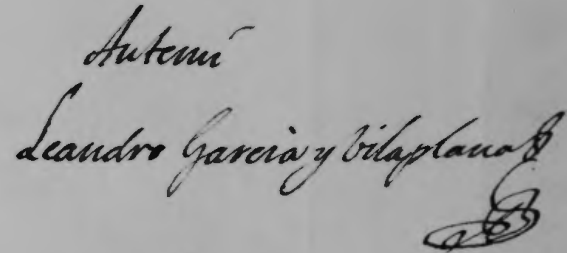 Ante mí
Leandro Garcià y Vilaplana